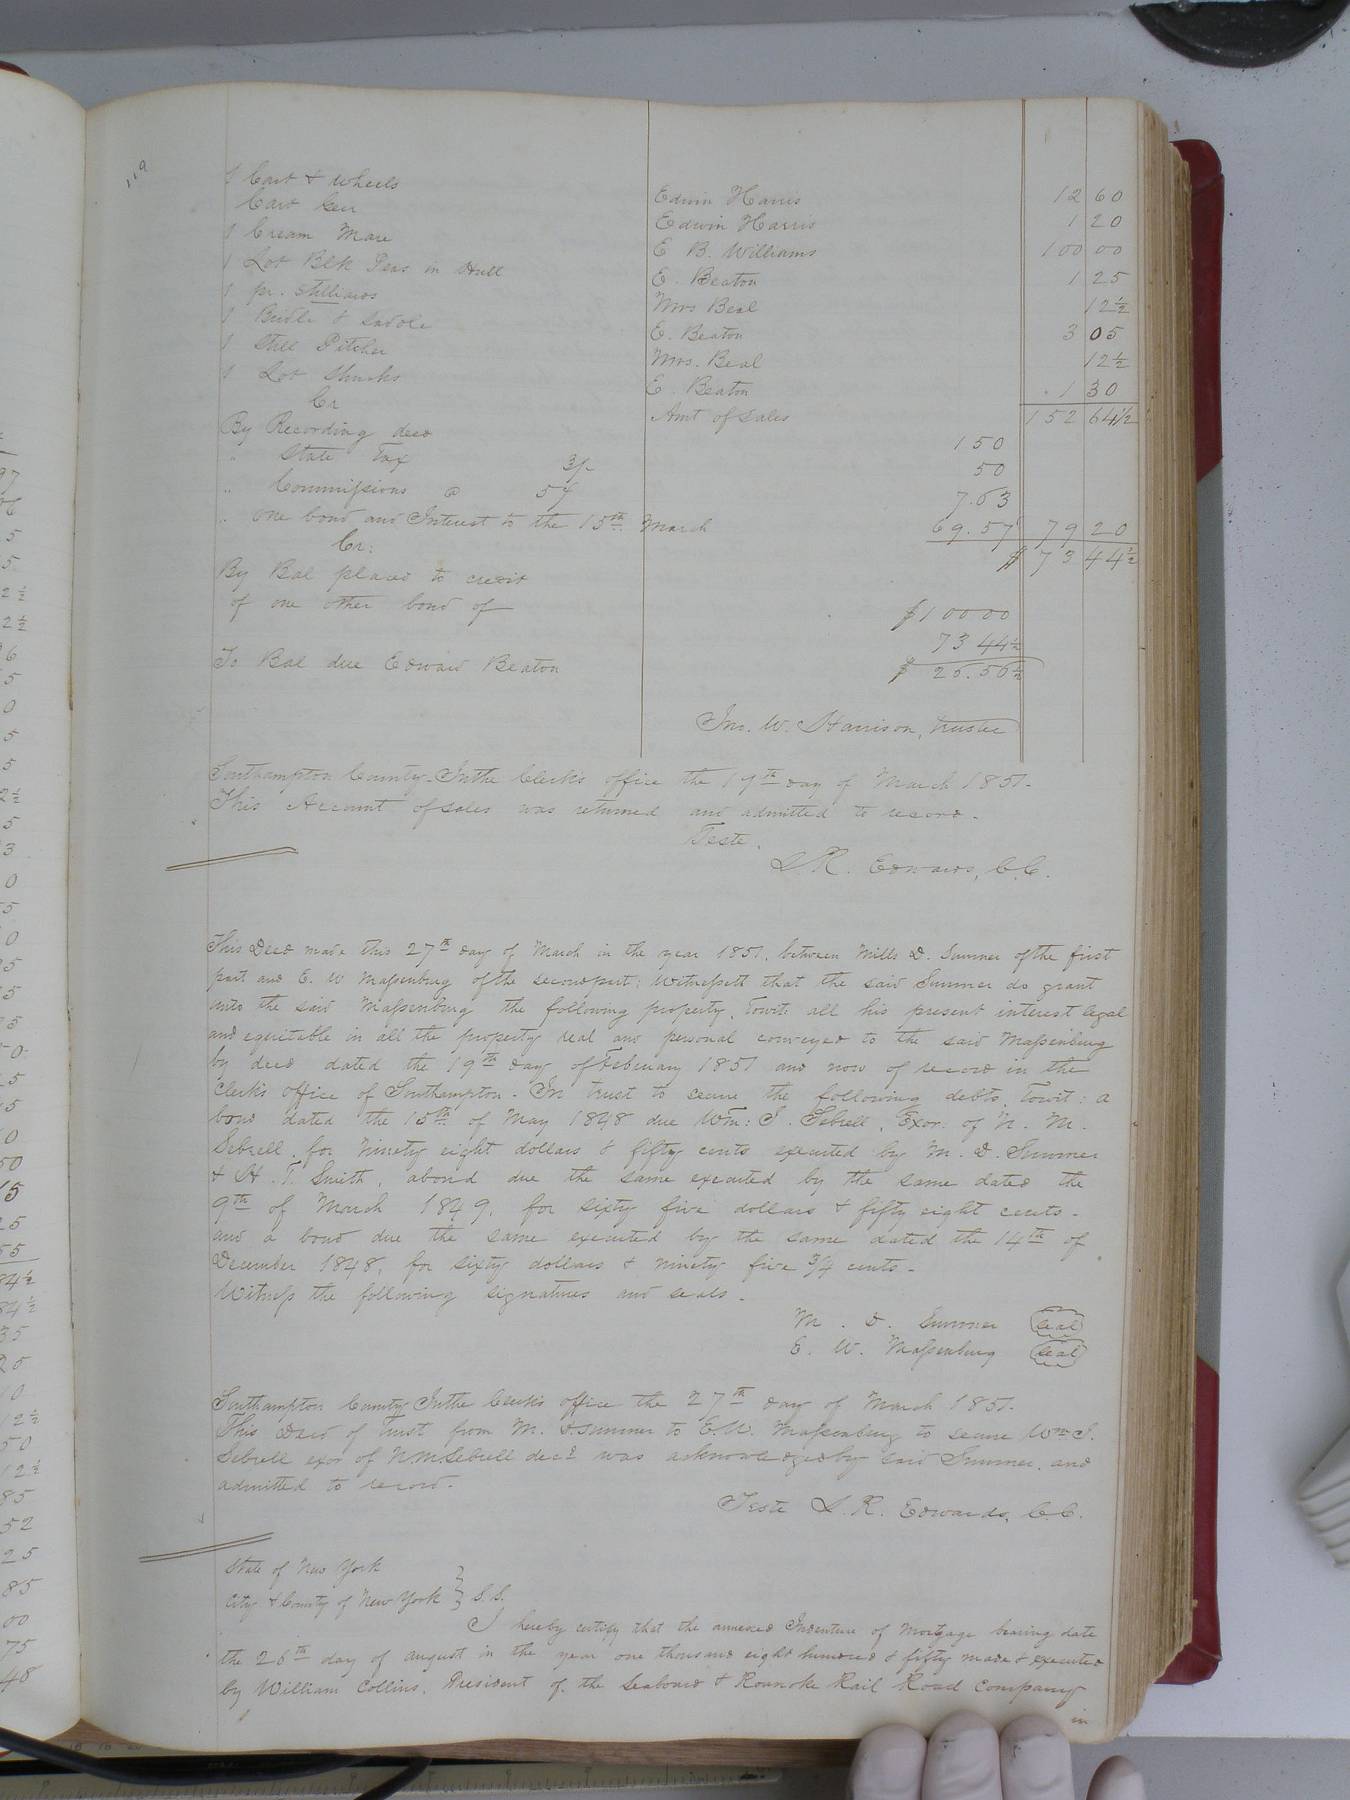 119
1 Cart & Wheels Edwin Harris 12 60
Cart Gear Edwin Harris 1 20
1 Cream Mare E B. Williams 100 00
1 Lot Blk Peas in Hull E. Beaton 1 25
1 pr. Stilliards Mrs Beal 12½
1 Bridle & Saddle E. Beaton 3 05
1 Still Pitcher Mrs. Beal 12½
1 Lot Shucks E. Beaton 1 30
Cr Amt of sales 152 64½
By Recording deed 150
" State Tax 3/- 50
" Commissions @ 5% 7.63
" one bond and Interest to the 15th March 69.57 79 20
Cr: $ 73 44½
By Bal placed to credit
of one other bond of $100 00
73 44½
To Bal due Edward Beaton $ 26.56½
Jno. W. Harrison, trustee
Southampton County. In the Clerk's office the 17th day of March 1851.
This Account of sales was returned and admitted to record.
Teste.
L R. Edwards, C.C.
This Deed made this 27th day of March in the year 1851, between Mills D. Sumner of the first
part and E. W Massenburg of the second part: Witnesseth that the said Sumner do grant
unto the said Massenburg the following property, Towit: all his present interest legal
and equitable in all the property real and personal conveyed to the said Massenburg
by deed dated the 19th day of February 1851 and now of record in the
Clerk's office of Southampton. In trust to secure the following debts, Towit: a
bond dated the 15th of May 1848 due Wm: J. Sebrell, Exor. of N. M.
Sebrell, for Ninety eight dollars & fifty cents executed by M. D. Sumner
& H. T. Smith, a bond due the same executed by the same dated the
9th of March 1849, for sixty five dollars & fifty eight cents.
and a bond due the same executed by the same dated the 14th of
December 1848, for sixty dollars & ninety five ¾ cents.
Witness the following signatures and seals.
M. D. Sumner seal
E. W. Massenburg seal
Southampton County In the Clerk's office the 27th day of March 1851.
This Deed of Trust from M. D. Sumner to E. W. Massenburg to secure Wm J.
Sebrell exor of N M Sebrell decd was acknowledged by said Sumner, and
admitted to record.
Teste L. R. Edwards, C.C.
State of New York
City & County of New York } S.S.
I hereby certify that the annexed Indenture of Mortgage bearing date
the 26th day of august in the year one thousand eight hundred & fifty made & executed
by William Collins, President of the Seaboard & Roanoke Rail Road Company
in